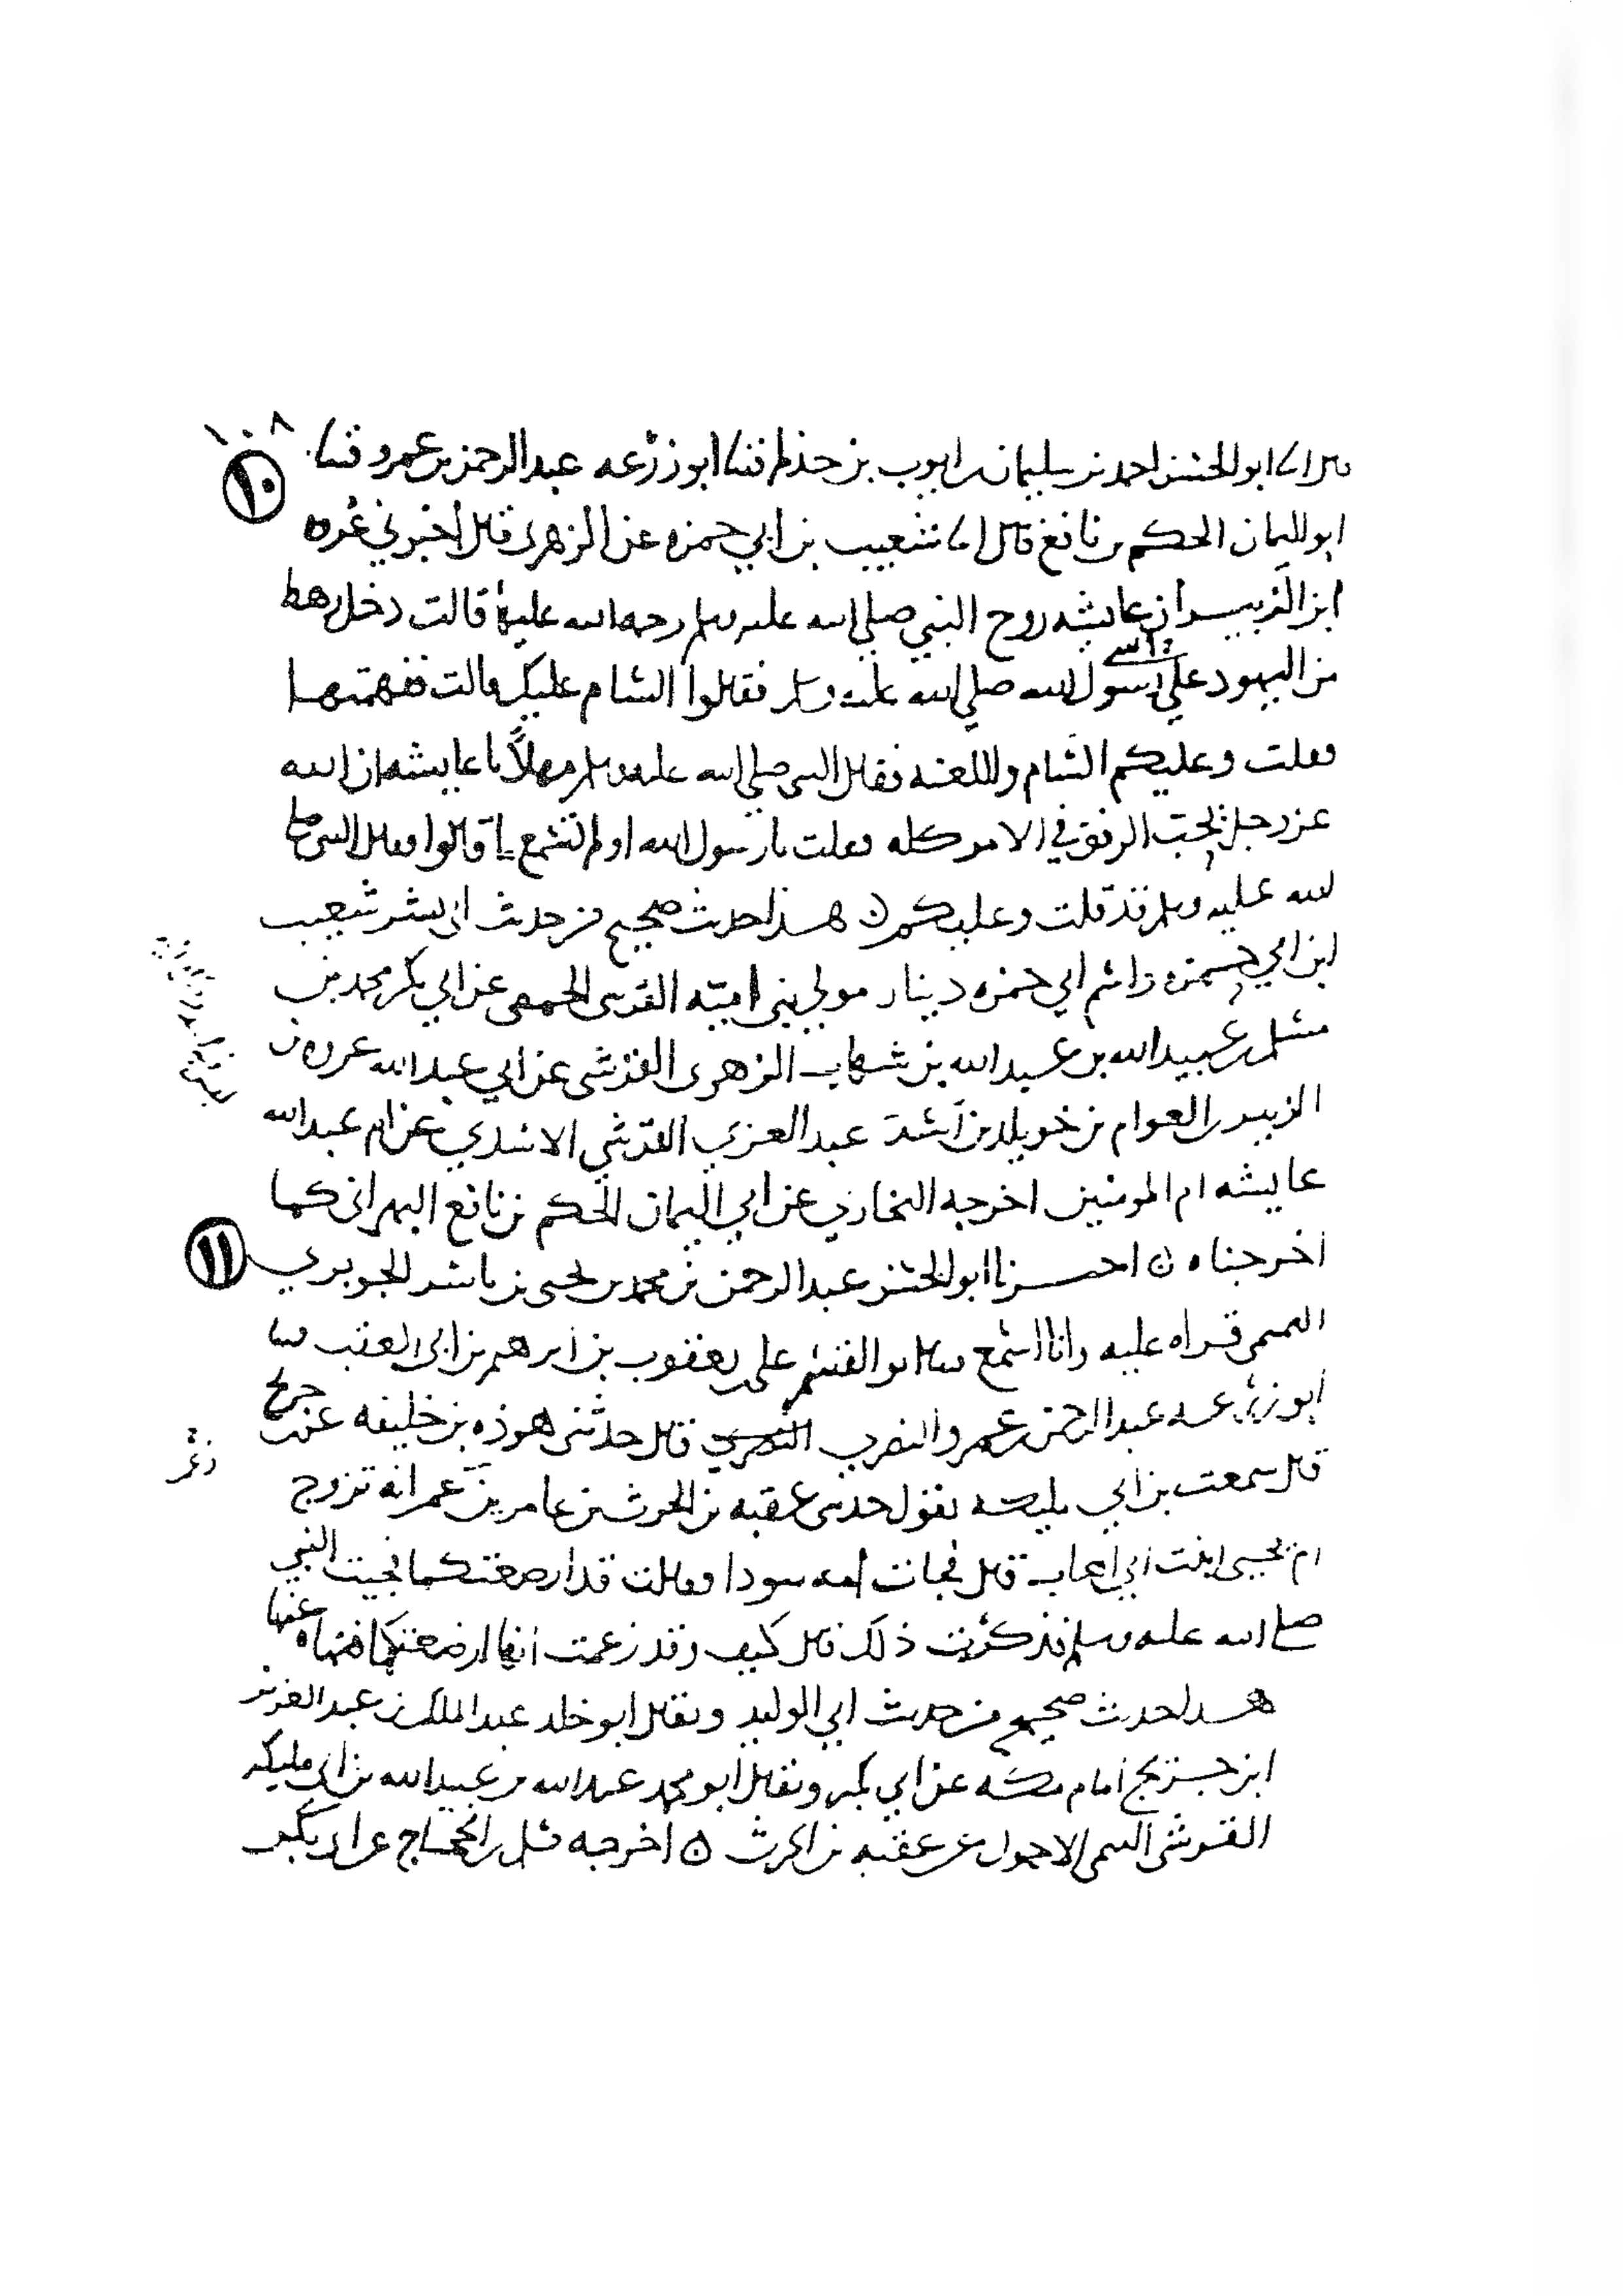 ١٠٨
١٠
قال انا ابو الحسن احمد بن سليمان بن ايوب بن حذلم ثنا ابو زرعه عبد الرحمن بن عمرو ثنا
ابو اليمان الحكم بن نافع قال انا شعيب بن ابي حمزه عن الزهري قال اخبرني عروه
ابن الزبير ان عايشه زوج النبي صلى الله عليه وسلم رحمه الله عليها قالت دخل رهط
من اليهود علي رسول الله صلي الله عليه وسلم فقالوا السام عليكم قالت ففهمتها
فقلت وعليكم السام واللعنه فقال النبي صلي الله عليه وسلم مهلاً يا عايشه ان الله
عز وجل يحب الرفق في الامر كله فقلت يا رسول الله او لم تسمع ما قالوا فقال النبي صلى
الله عليه وسلم قد قلت وعليكم ن هذا حديث صحيح من حديث ابي بشر شعيب
ابن ابي حمزه واسم ابي حمزه دينار مولي بني اميه القرشي الحمصي عن ابي بكر محمد بن
مسلم بن عبيد الله بن عبد الله بن شهاب الزهري القرشي عن ابي عبد الله عروه بن
الزبير بن العوام بن خويلد بن اسد عبد العزي القرشي الاسدي عن ام عبد الله
عايشه ام المومنين اخرجه البخاري عن ابي اليمان الحكم بن نافع البهراني كما
اخرجناه ن اخبرنا ابو الحسن عبد الرحمن بن محمد بن يحيى بن ياسر الجوبري
١١
التميمي قراه عليه وانا اسمع ثنا ابو القسم على بن يعقوب بن ابرهيم بن ابي العقب ثنا
ابو زرعه عبد الرحمن بن عمرو النصري قال حدثني هوذه بن خليفه عن بن جريج
قال سمعت بن ابي مليكه يقول حدثني عقبه بن الحرث بن عامر بن عمر انه تزوج
ام يحيى ابنت ابي اهاب قال فجات امه سودا فقالت قد ارضعتكما فجيت النبي
صلى الله عليه وسلم فذكرت ذلك قال كيف وقد زعمت انها ارضعتكما فنهاه عنها
هذا حديث صحيح من حديث ابي الوليد ويقال ابو خلد عبد الملك بن عبد العزيز
ابن جريج امام مكه عن ابي بكر ويقال ابو محمد عبد الله بن عبيد الله بن ابي مليكه
القرشي التيمي الاحول عن عقبه بن الحرث ن اخرجه مسلم بن الحجاج عن ابي بكر